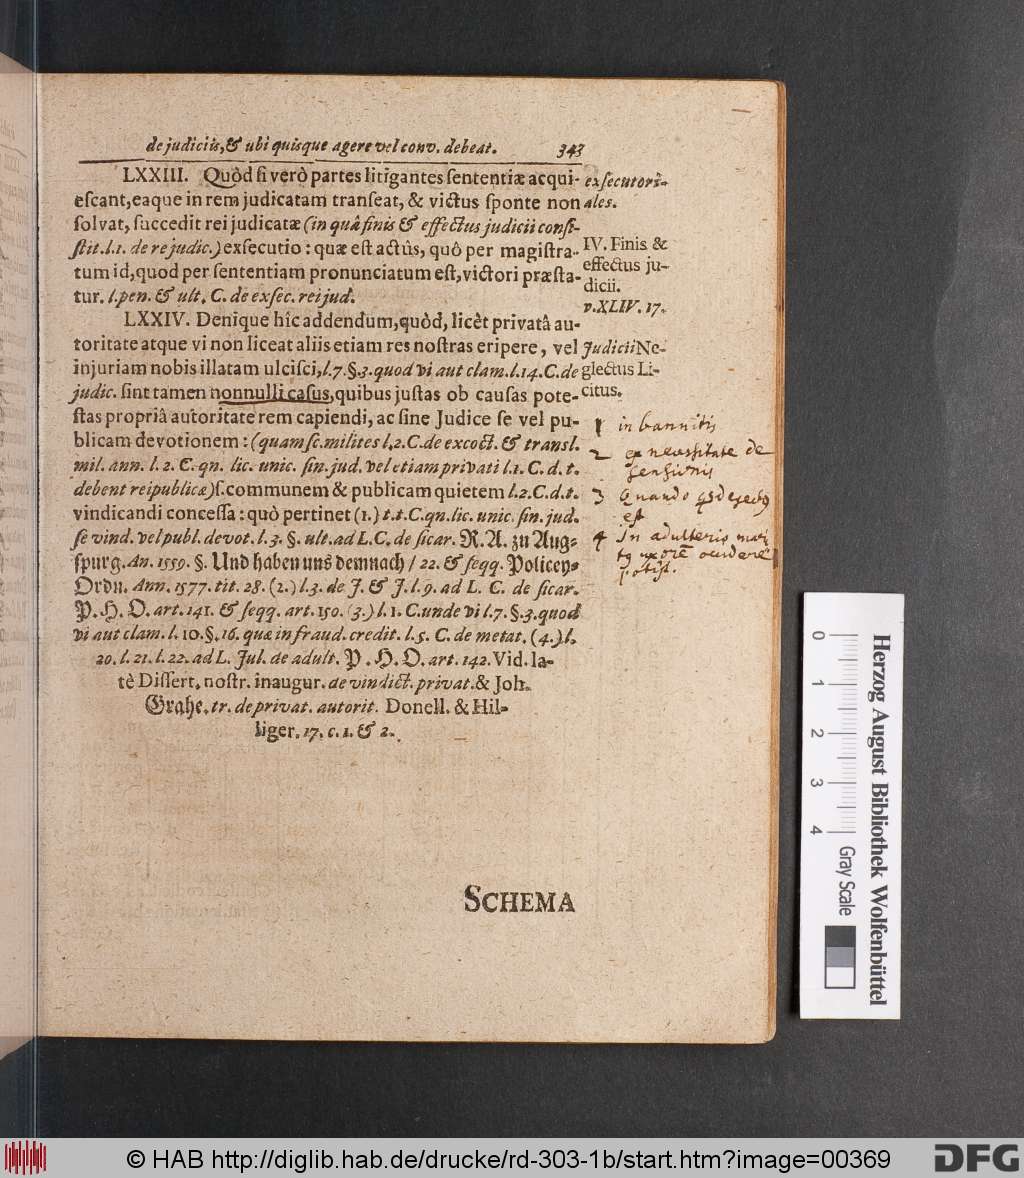 de judiciis, & ubi quisque agere vel conv. debeat. 343
LXXIII. Quòd si verò partes litigantes sententiæ acqui-
escant, eaque in rem judicatam transeat, & victus sponte non
solvat, succedit rei judicatæ (in quâ finis & effectus judicii consi-
stit. l.1. de re judic.) exsecutio: quæ est actus, quô per magistra-
tum id, quod per sententiam pronunciatum est, victori præsta-
tur. l. pen. & ult. C. de exsec. rei jud.
exsecutori-
ales.
IV. Finis &
effectus ju-
dicii.
v. XLIV. 17.
LXXIV. Denique hîc addendum, quòd, licèt privatâ au-
toritate atque vi non liceat aliis etiam res nostras eripere, vel
injuriam nobis illatam ulcisci, l.7.§.3. quod vi aut clam. l.14. C. de
judic. sint tamen nonnulli casus, quibus justas ob causas pote-
stas propriâ autoritate rem capiendi, ac sine Judice se vel pu-
blicam devotionem: (quam sc. milites l.2. C. de excoct. & transl.
mil. ann. l. 2. C. qn. lic. unic. sin. jud. vel etiam privati l.1. C. d. t.
debent reipublicæ) s. communem & publicam quietem l.2. C. d. t.
vindicandi concessa: quò pertinet (1.) t.t. C. qn. lic. unic. sin. jud.
se vind. vel publ. devot. l. 3. §. ult. ad L. C. de sicar. R. A. zu Aug-
spurg. An. 1559. §. Und haben uns demnach / 22. & seqq. Policey-
Ordn. Ann. 1577. tit. 28. (2.) l.3. de J. & J. l.9. ad L. C. de sicar.
P. H. O. art. 141. & seqq. art. 150. (3.) l. 1. C. unde vi l.7. §.3. quod
vi aut clam. l. 10. §. 16. quæ in fraud. credit. l. 5. C. de metat. (4.) l.
20. l. 21. l. 22. ad L. Jul. de adult. P. H. O. art. 142. Vid. la-
tè Dissert. nostr. inaugur. de vindict. privat. & Joh.
Grahe. tr. de privat. autorit. Donell. & Hil-
liger. 17. c. 1. & 2.
Judicii Ne-
glectus Li-
citus.
1 in bannitis
2 ex necessitate de
fensionis
3 Quando
est
4 In adulterio mari
uxorē occidere
potest.
SCHEMA
0 1 2 3 4
Gray Scale
Herzog August Bibliothek Wolfenbüttel
© HAB http://diglib.hab.de/drucke/rd-303-1b/start.htm?image=00369
DFG